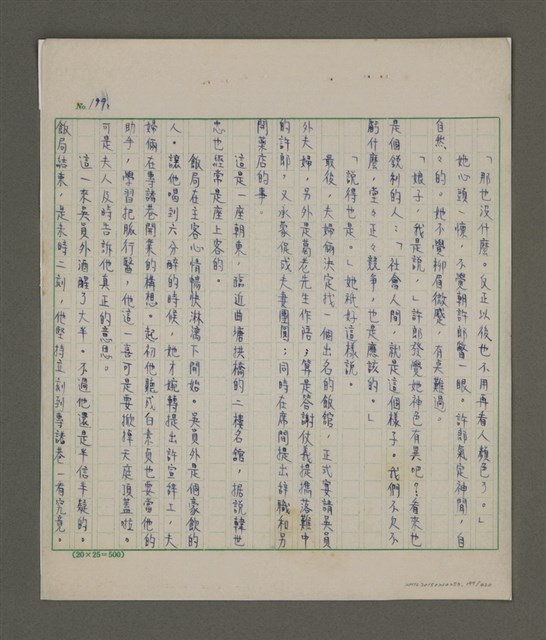 No. 199
「那也沒什麼。反正以後也不用再看人顏色了。」
她心頭一懍,不覺朝許郎瞥一眼。許郎氣定神閒,自
自然々的。她不覺柳眉微蹙,有臾難過。
「娘子,我是説,」許郎發覺她神色有異吧?看來也
是個銳利的人:「社會人間,就是這個樣子。我們不欠不
虧什麼,堂々正々競爭,也是應該的。」
「說得也是。」她祇好這樣說。
最後,夫婦倆決定找一個出名的飯館,正式宴請吳員
外夫婦,另外是葛老先生作陪;算是答謝仗義提携落難中
的許郎,又承蒙促成夫妻團圓;同時在席間提出辭職和另
開藥店的事。
這是一座朝東,臨近曲塘拱橋的二樓名館,据說韓世
忠也經常是座上客的。
飯局在主客心情暢快淋漓下開始。吳員外是個豪飲的
人。讓他喝到六分醉的時候,她才婉轉提出許宣辭工,夫
婦倆在專諸巷開業的構想。起初他聽成白素貞也要當他的
助手,學習把脈行醫,他這一喜可是要掀掉天庭頂蓋啦。
可是夫人及時告訴他真正的意思。
這一來吳員外酒醒了大半。不過他還是半信半疑的。
飯局結束,是未時二刻,他堅持立刻到專諸巷一看究竟。
(20×25=500)